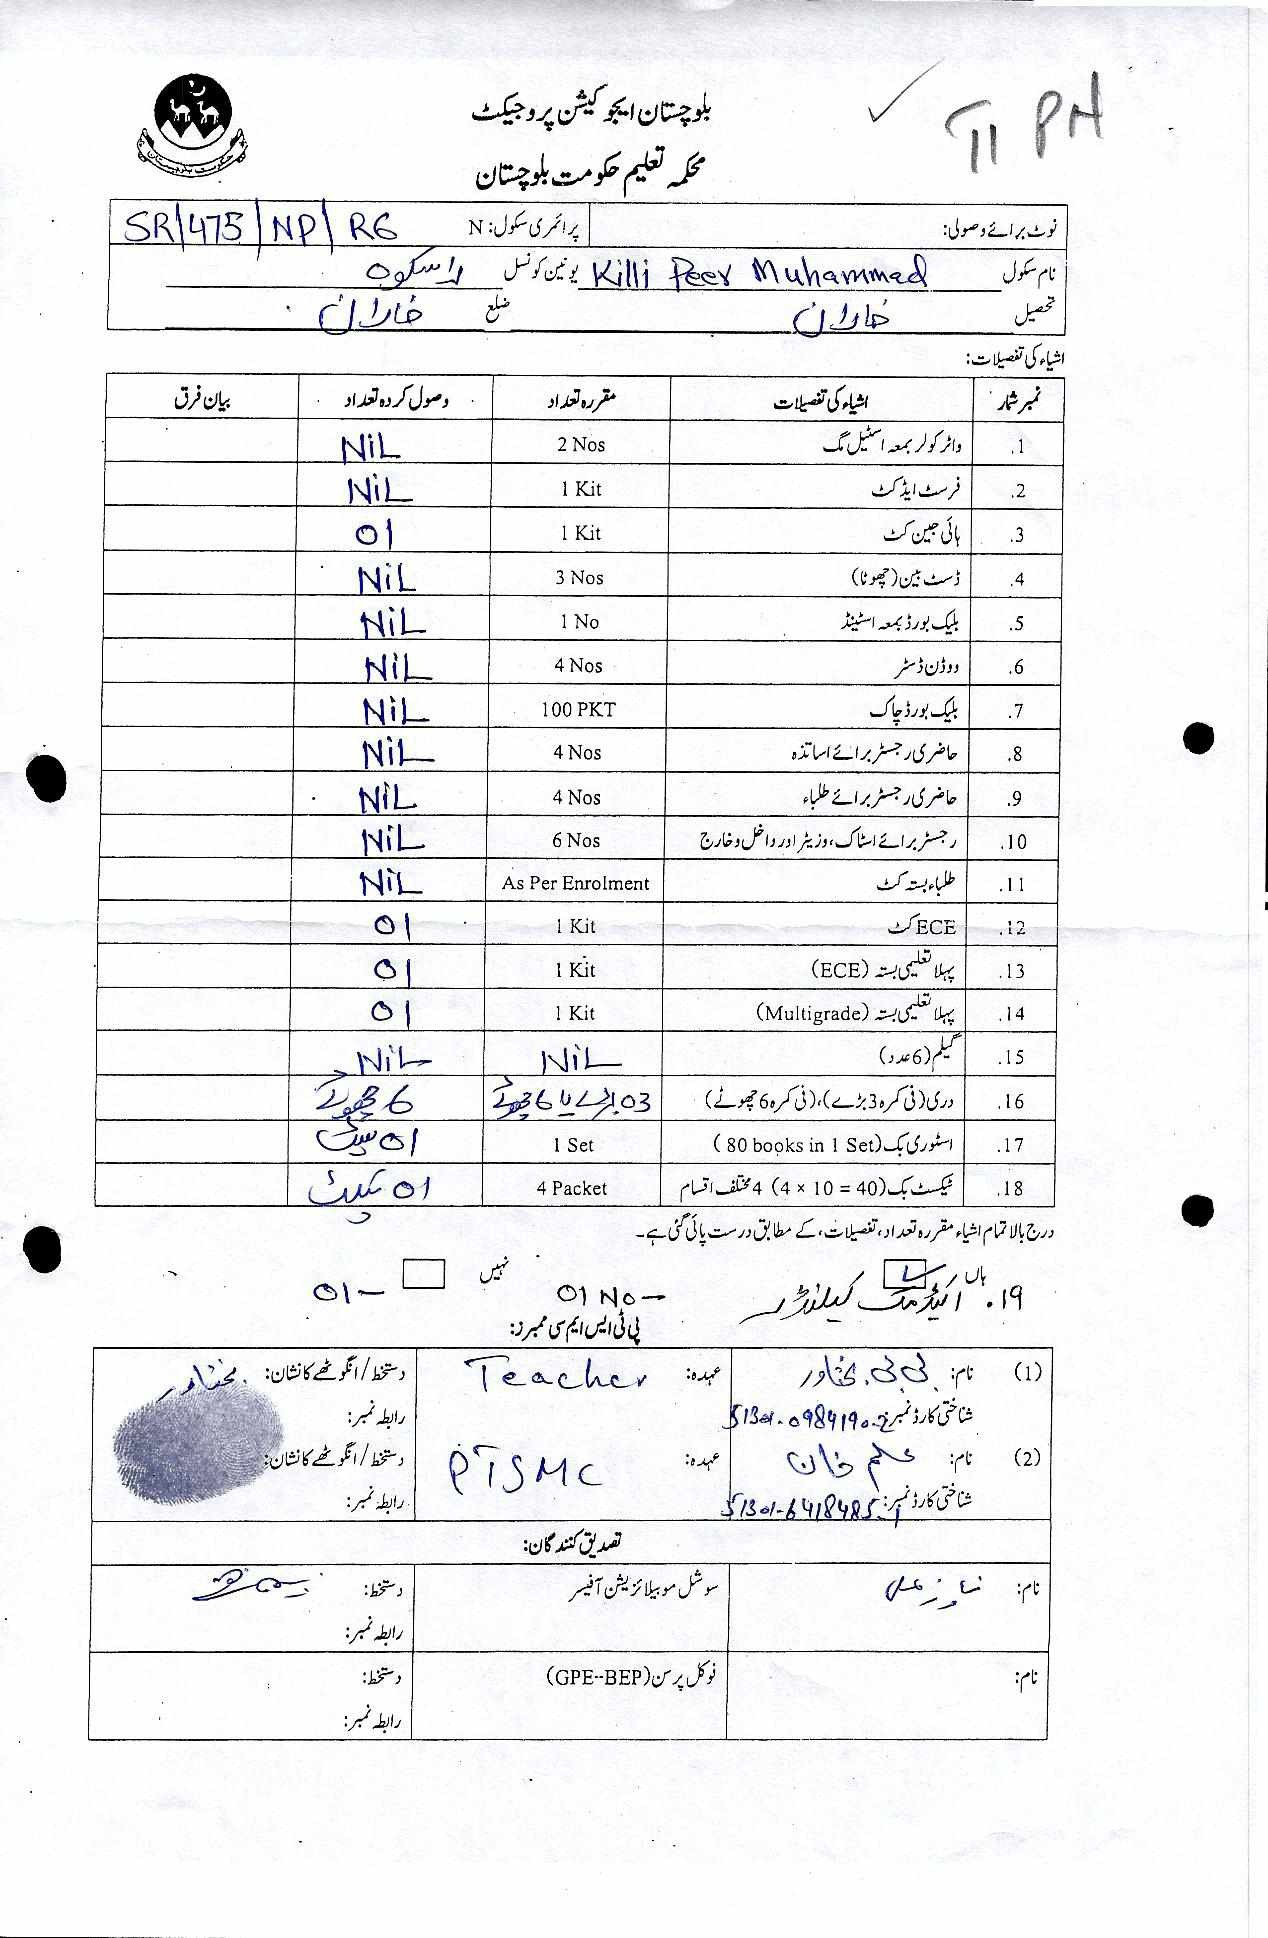 بلوچستان ایجوکیشن پروجیکٹ
محکمہ تعلیم حکومت بلوچستان
II PH
نوٹ برائے وصولی: پرائمری سکول: N SR/475/NP/RG
نام سکول Killi Peer Muhammad یونین کونسل راسکوہ
تحصیل خاران ضلع خاران
اشیاء کی تفصیلات:
نمبر شمار اشیاء کی تفصیلات مقررہ تعداد وصول کردہ تعداد بیان فرق
1. واٹر کولر بمعہ اسٹیل مگ 2 Nos NiL
2. فرسٹ ایڈ کٹ 1 Kit NiL
3. ہائی جین کٹ 1 Kit 01
4. ڈسٹ بین (چھوٹا) 3 Nos NiL
5. بلیک بورڈ بمعہ اسٹینڈ 1 No NiL
6. ووڈن ڈسٹر 4 Nos NiL
7. بلیک بورڈ چاک 100 PKT NiL
8. حاضری رجسٹر برائے اساتذہ 4 Nos NiL
9. حاضری رجسٹر برائے طلباء 4 Nos NiL
10. رجسٹر برائے اسٹاک، وزیٹر اور داخل و خارج 6 Nos NiL
11. طلباء بستہ کٹ As Per Enrolment NiL
12. ECE کٹ 1 Kit 01
13. پہلا تعلیمی بستہ (ECE) 1 Kit 01
14. پہلا تعلیمی بستہ (Multigrade) 1 Kit 01
15. گیلم (6 عدد) NiL NiL
16. دری (فی کمرہ 3 بڑے)، (فی کمرہ 6 چھوٹے) 03 بڑے یا 6 چھوٹے 6 چھوٹے
17. اسٹوری بک (80 books in 1 Set) 1 Set 01 سیٹ
18. ٹیکسٹ بک (4 × 10 = 40) 4 مختلف اقسام 4 Packet 01 پیکٹ
درج بالا تمام اشیاء مقررہ تعداد، تفصیلات، کے مطابق درست پائی گئی ہے۔
ہاں نہیں
19. اکیڈمک کیلنڈر 01 No 01
پی ٹی ایس ایم سی ممبرز:
(1) نام: بی بی بختاور عہدہ: Teacher دستخط/انگوٹھے کا نشان: بختاور
شناختی کارڈ نمبر: 51301-0984190-2 رابطہ نمبر:
(2) نام: خان عہدہ: PTSMC دستخط/انگوٹھے کا نشان:
شناختی کارڈ نمبر: 51301-6418485-1 رابطہ نمبر:
تصدیق کنندگان:
نام: سوشل موبیلائزیشن آفیسر دستخط:
رابطہ نمبر:
نام: فوکل پرسن (GPE--BEP) دستخط:
رابطہ نمبر: